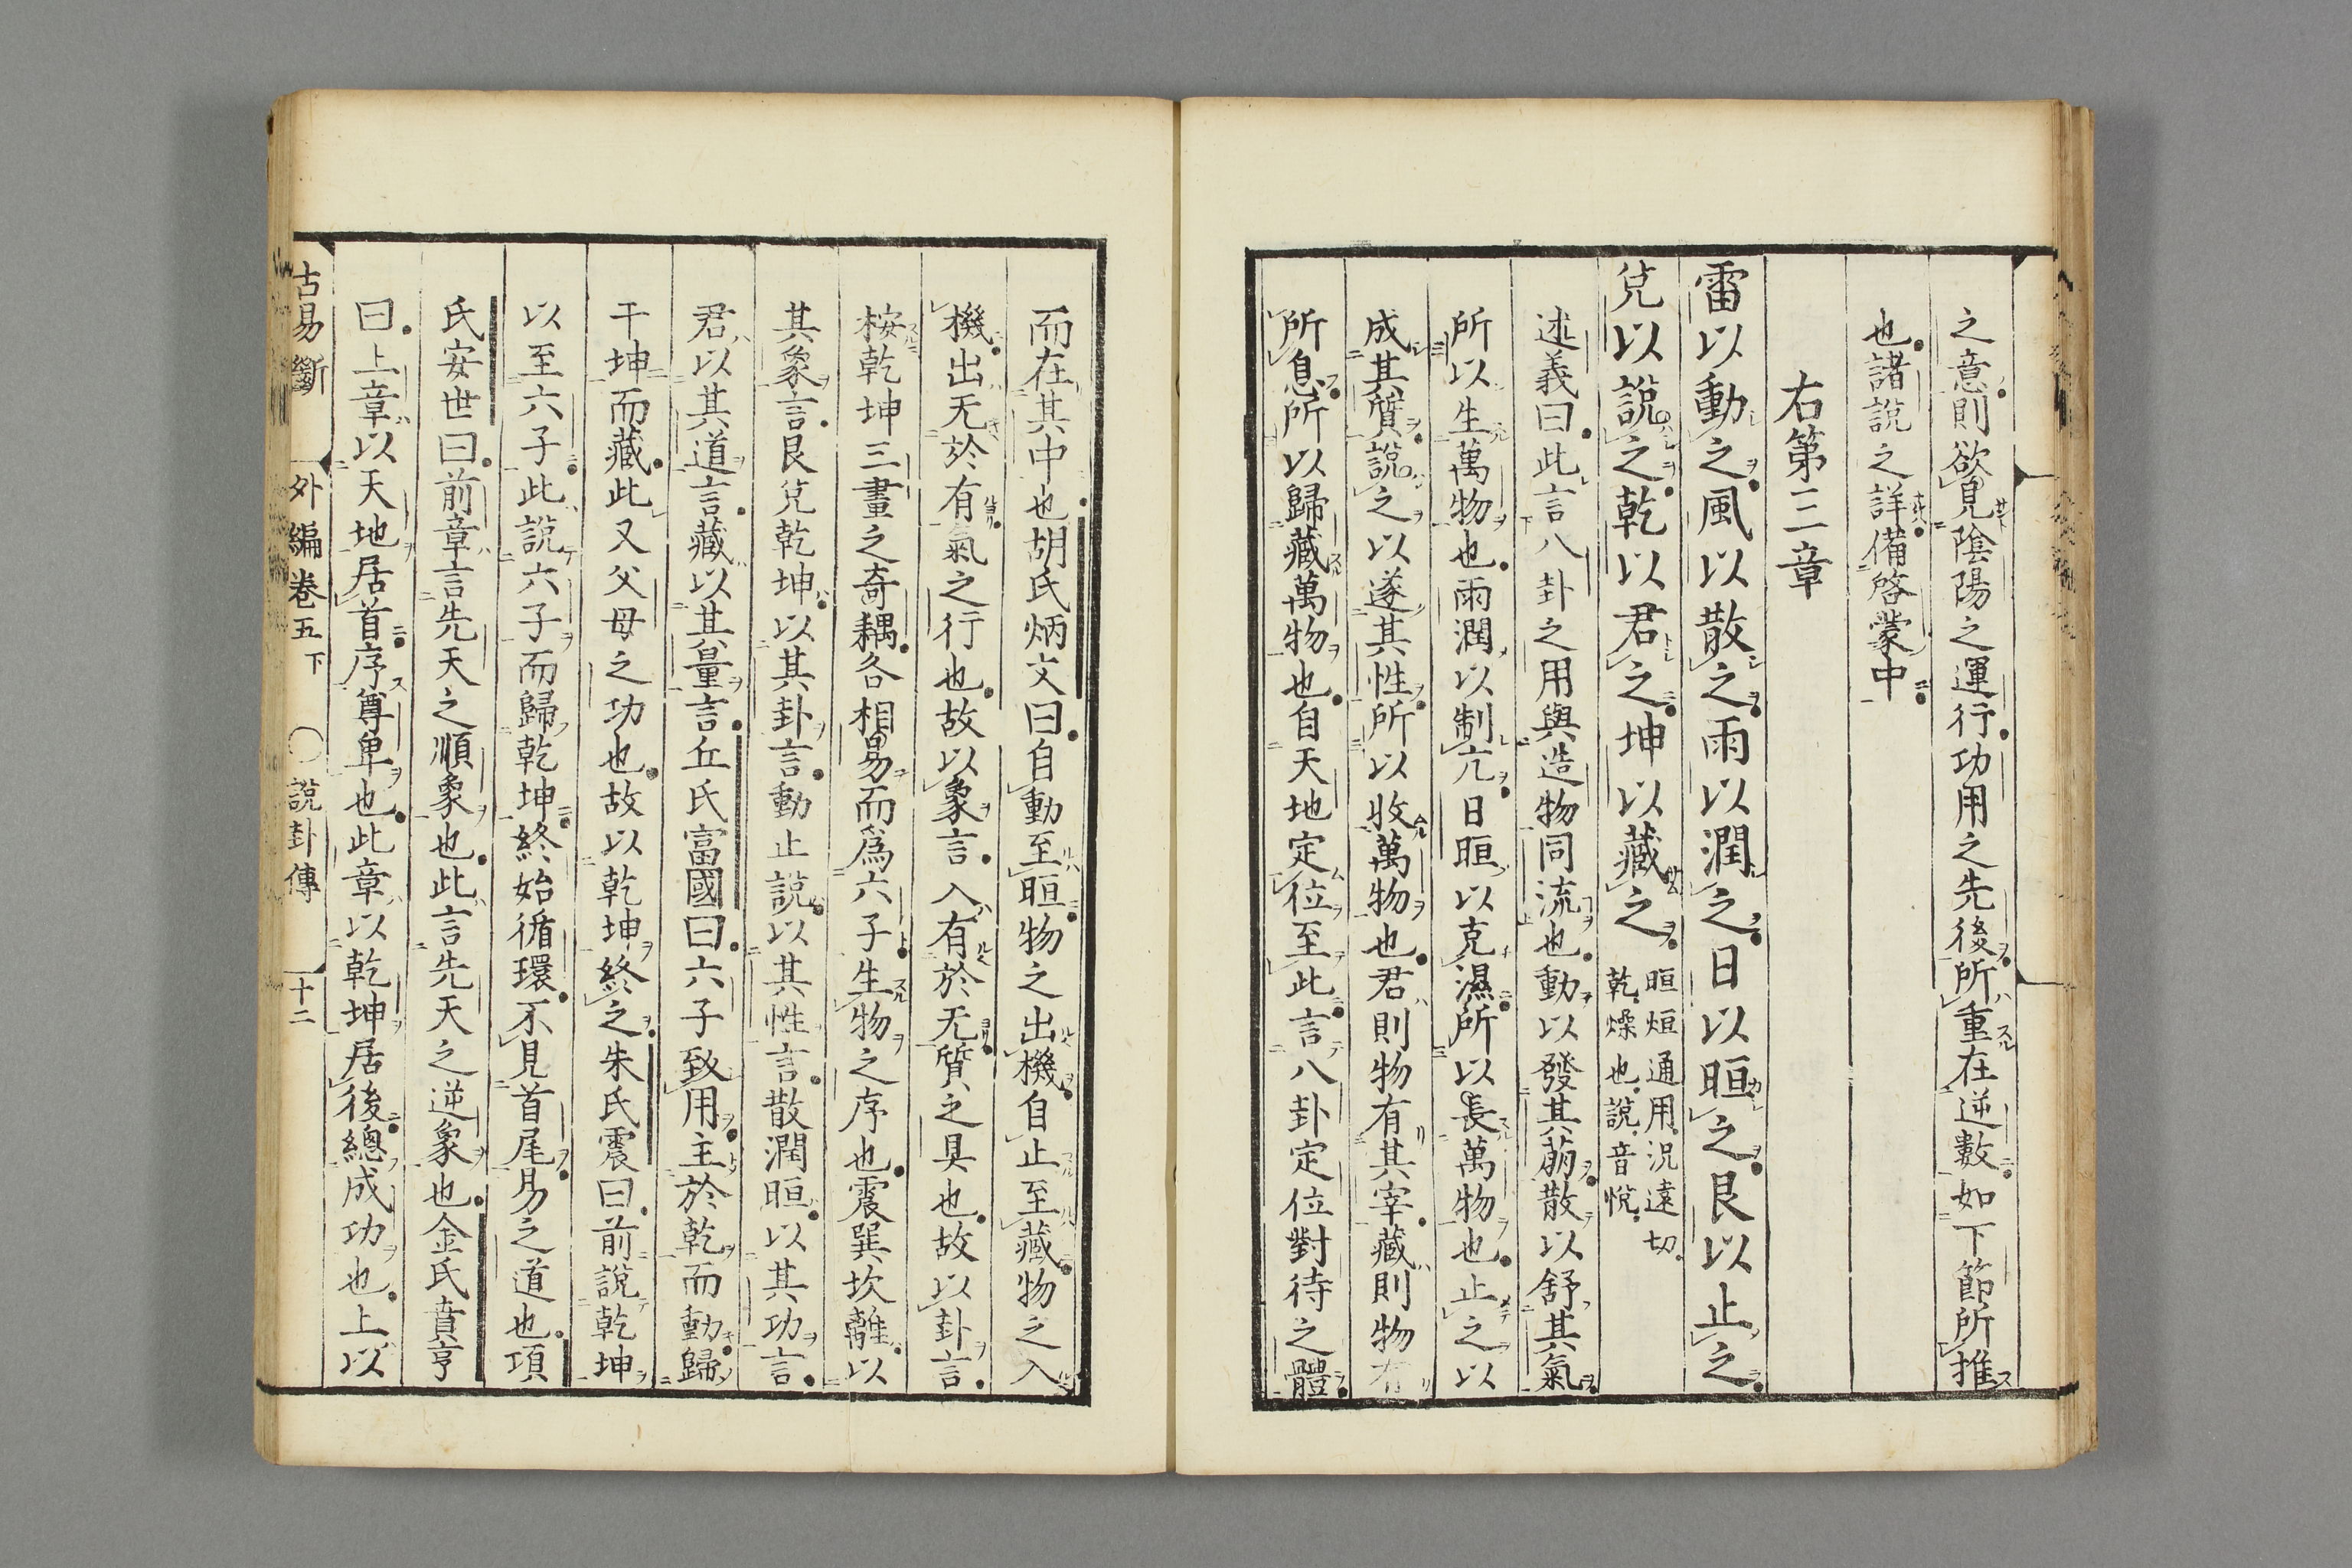 之意則欲見陰陽之運行功用之先後所重在逆數如下節所推
也諸說之詳備啓蒙中
右第三章
雷以動之風以散之雨以潤之日以晅之艮以止之
兌以說之乾以君之坤以藏之
晅烜通用況遠切
乾燥也說音悅
述義曰此言八卦之用與造物同流也動以發其萠散以舒其氣
所以生萬物也雨潤以制亢日晅以克濕所以長萬物也止之以
成其質說之以遂其性所以收萬物也君則物有其宰藏則物有
所息所以歸藏萬物也自天地定位至此言八卦定位對待之體
而在其中也胡氏炳文曰自動至晅物之出機自止至藏物之入
機出无於有氣之行也故以象言入有於无質之具也故以卦言
桉乾坤三畫之奇耦各相易而爲六子生物之序也震巽坎離以
其象言艮兌乾坤以其卦言動止說以其性言散潤晅以其功言
君以其道言藏以其量言丘氏富國曰六子致用主於乾而動歸
干坤而藏此又父母之功也故以乾坤終之朱氏震曰前說乾坤
以至六子此說六子而歸乾坤終始循環不見首尾易之道也項
氏安世曰前章言先天之順象也此言先天之逆象也金氏賁亨
曰上章以天地居首序尊卑也此章以乾坤居後總成功也上以
古易斷 外編卷五下 〇說卦傳 十二